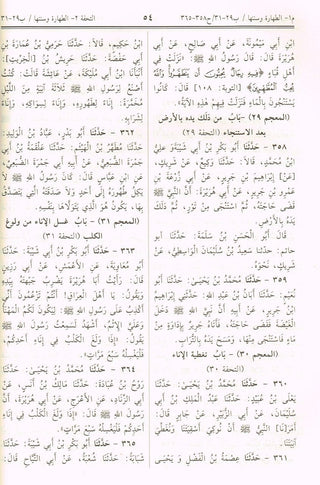 م١- الطهارة وسننها / ب٢٩-٣١/ح٣٥٨-٣٦٥
٥٤
التحفة ٢- الطهارة وسننها / ب٢٩-٣١
ابْنِ أَبِي مَيْمُونَةَ، عَنْ أَبِي صَالِحٍ، عَنْ أَبِي
هُرَيْرَةَ قَالَ: قَالَ رَسُولُ اللهِ ﷺ: «نَزَلَتْ فِي
أَهْلِ قُبَاءَ ﴿فِيهِ رِجَالٌ يُحِبُّونَ أَن يَتَطَهَّرُوا وَاللَّهُ
يُحِبُّ الْمُطَّهِّرِينَ﴾ [التوبة: ١٠٨] قَالَ: كَانُوا
يَسْتَنْجُونَ بِالْمَاءِ فَنَزَلَتْ فِيهِمْ هٰذِهِ الْآيَةُ».
(المعجم ٢٩) - بَابُ مَنْ دلك يده بالأرض
بعد الاستنجاء (التحفة ٢٩)
٣٥٨ - حَدَّثَنَا أَبُو بَكْرِ بْنُ أَبِي شَيْبَةَ وَعَلِيُّ
ابْنُ مُحَمَّدٍ، قَالَا: حَدَّثَنَا وَكِيعٌ، عَنْ شَرِيكٍ،
[عَنْ] إِبْرَاهِيمَ بْنِ جَرِيرٍ، عَنْ أَبِي زُرْعَةَ بْنِ
عَمْرِو بْنِ جَرِيرٍ، عَنْ أَبِي هُرَيْرَةَ: أَنَّ النَّبِيَّ ﷺ
قَضَى حَاجَتَهُ، ثُمَّ اسْتَنْجَى مِنْ تَوْرٍ، ثُمَّ دَلَكَ
يَدَهُ بِالْأَرْضِ.
قَالَ أَبُو الْحَسَنِ بْنُ سَلَمَةَ: حَدَّثَنَا أَبُو
حَاتِمٍ: حَدَّثَنَا سَعِيدُ بْنُ سُلَيْمَانَ الْوَاسِطِيُّ، عَنْ
شَرِيكٍ، نَحْوَهُ.
٣٥٩ - حَدَّثَنَا مُحَمَّدُ بْنُ يَحْيَى: حَدَّثَنَا أَبُو
نُعَيْمٍ: حَدَّثَنَا أَبَانُ بْنُ عَبْدِ اللهِ: حَدَّثَنِي إِبْرَاهِيمُ
ابْنُ جَرِيرٍ، عَنْ أَبِيهِ أَنَّ نَبِيَّ اللهِ ﷺ دَخَلَ
الْغَيْضَةَ فَقَضَى حَاجَتَهُ، فَأَتَاهُ جَرِيرٌ بِإِدَاوَةٍ مِنْ
مَاءٍ فَاسْتَنْجَى مِنْهَا، وَمَسَحَ يَدَهُ بِالتُّرَابِ.
(المعجم ٣٠) - بَابُ تغطية الإناء
(التحفة ٣٠)
٣٦٠ - حَدَّثَنَا مُحَمَّدُ بْنُ يَحْيَى: حَدَّثَنَا
يَعْلَى بْنُ عُبَيْدٍ: حَدَّثَنَا عَبْدُ الْمَلِكِ بْنُ أَبِي
سُلَيْمَانَ، عَنْ أَبِي الزُّبَيْرِ، عَنْ جَابِرٍ قَالَ:
أَمَرَ[نَا] النَّبِيُّ ﷺ أَنْ نُوكِيَ أَسْقِيَتَنَا وَنُغَطِّيَ
آنِيَتَنَا.
٣٦١ - حَدَّثَنَا عِصْمَةُ بْنُ الْفَضْلِ وَ يَحْيَى
ابْنُ حَكِيمٍ، قَالَا: حَدَّثَنَا حَرَمِيُّ بْنُ عُمَارَةَ بْنِ
أَبِي حَفْصَةَ: حَدَّثَنَا حَرِيشُ بْنُ [الْخِرِّيتِ]:
أَنْبَأَنَا ابْنُ أَبِي مُلَيْكَةَ، عَنْ عَائِشَةَ قَالَتْ: كُنْتُ
أَصْنَعُ لِرَسُولِ اللهِ ﷺ ثَلَاثَةَ آنِيَةٍ مِنَ اللَّيْلِ
مُخَمَّرَةً: إِنَاءً لِطَهُورِهِ، وَإِنَاءً لِسِوَاكِهِ، وَإِنَاءً
لِشَرَابِهِ.
٣٦٢ - حَدَّثَنَا أَبُو بَدْرٍ، عَبَّادُ بْنُ الْوَلِيدِ:
حَدَّثَنَا مُطَهَّرُ بْنُ الْهَيْثَمِ: حَدَّثَنَا عَلْقَمَةُ بْنُ أَبِي
جَمْرَةَ الضُّبَعِيُّ، عَنْ أَبِيهِ أَبِي جَمْرَةَ الضُّبَعِيِّ،
عَنِ ابْنِ عَبَّاسٍ قَالَ: كَانَ رَسُولُ اللهِ ﷺ لَا
يَكِلُ طُهُورَهُ إِلَى أَحَدٍ وَلَا صَدَقَتَهُ الَّتِي يَتَصَدَّقُ
بِهَا، يَكُونُ هُوَ الَّذِي يَتَوَلَّاهَا بِنَفْسِهِ.
(المعجم ٣١) - بَابُ غسل الإناء من ولوغ
الكلب (التحفة ٣١)
٣٦٣ - حَدَّثَنَا أَبُو بَكْرِ بْنُ أَبِي شَيْبَةَ: حَدَّثَنَا
أَبُو مُعَاوِيَةَ، عَنِ الْأَعْمَشِ، عَنْ أَبِي رَزِينٍ
قَالَ: رَأَيْتُ أَبَا هُرَيْرَةَ يَضْرِبُ جَبْهَتَهُ بِيَدِهِ
وَيَقُولُ: يَا أَهْلَ الْعِرَاقِ! أَنْتُمْ تَزْعُمُونَ أَنِّي
أَكْذِبُ عَلَى رَسُولِ اللهِ ﷺ لِيَكُونَ لَكُمُ الْمَهْنَأُ
وَعَلَيَّ الْإِثْمُ، أَشْهَدُ لَسَمِعْتُ رَسُولَ اللهِ ﷺ
يَقُولُ: «إِذَا وَلَغَ الْكَلْبُ فِي إِنَاءِ أَحَدِكُمْ،
فَلْيَغْسِلْهُ سَبْعَ مَرَّاتٍ».
٣٦٤ - حَدَّثَنَا مُحَمَّدُ بْنُ يَحْيَى: حَدَّثَنَا
رَوْحُ بْنُ عُبَادَةَ: حَدَّثَنَا مَالِكُ بْنُ أَنَسٍ، عَنْ
أَبِي الزِّنَادِ، عَنِ الْأَعْرَجِ، عَنْ أَبِي هُرَيْرَةَ، أَنَّ
رَسُولَ اللهِ ﷺ قَالَ: «إِذَا وَلَغَ الْكَلْبُ فِي إِنَاءِ
أَحَدِكُمْ فَلْيَغْسِلْهُ سَبْعَ مَرَّاتٍ».
٣٦٥ - حَدَّثَنَا أَبُو بَكْرِ بْنُ أَبِي شَيْبَةَ: حَدَّثَنَا
شَبَابَةُ: حَدَّثَنَا شُعْبَةُ، عَنْ أَبِي التَّيَّاحِ قَالَ: